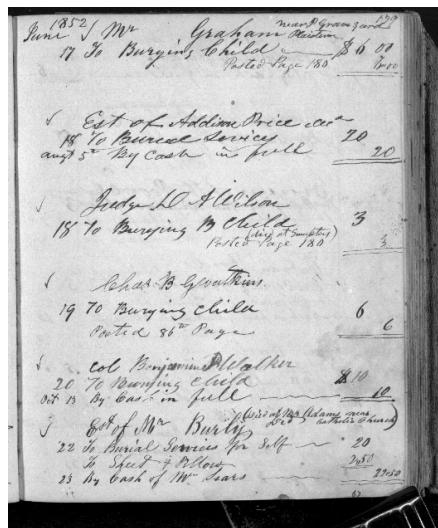 1852 179
June Mr Graham near P Graveyard
17 To Burying Child $6 00
Posted Page 180
Est of Addison Price
18 To Burial Services 20
augt 5th By Cash in full 20
Judge D A Wilson
18 To Burying B Child 3
(died at Sumpter)
Posted Page 180 3
Chas B Gwatkins
19 To Burying Child 6
Posted 86th Page 6
Col Benjamin P Walker
20 To Burying Child $10
Oct 13 By Cash in full 10
Est of Mr Burly (Died at Mrs Adams near Catholic Church)
22 To Burial Services for Self 20
To Sheet & Pillow 2,50
23 By Cash of Mr Sears 22.50